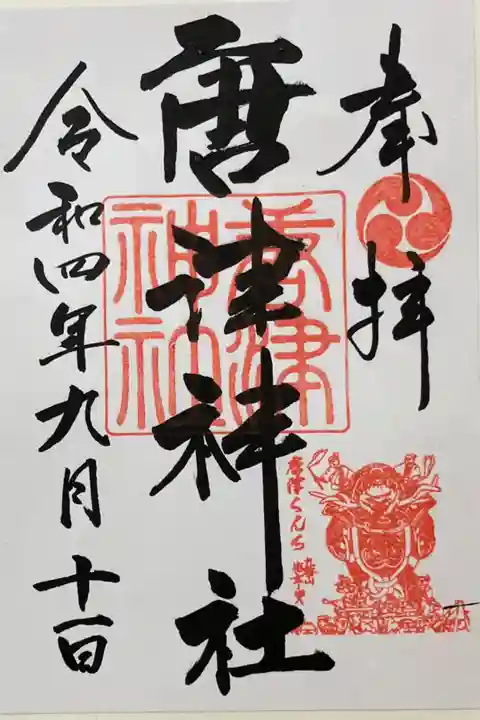 奉拝
唐津神社
唐津神社
唐津くんち
令和四年九月十一日